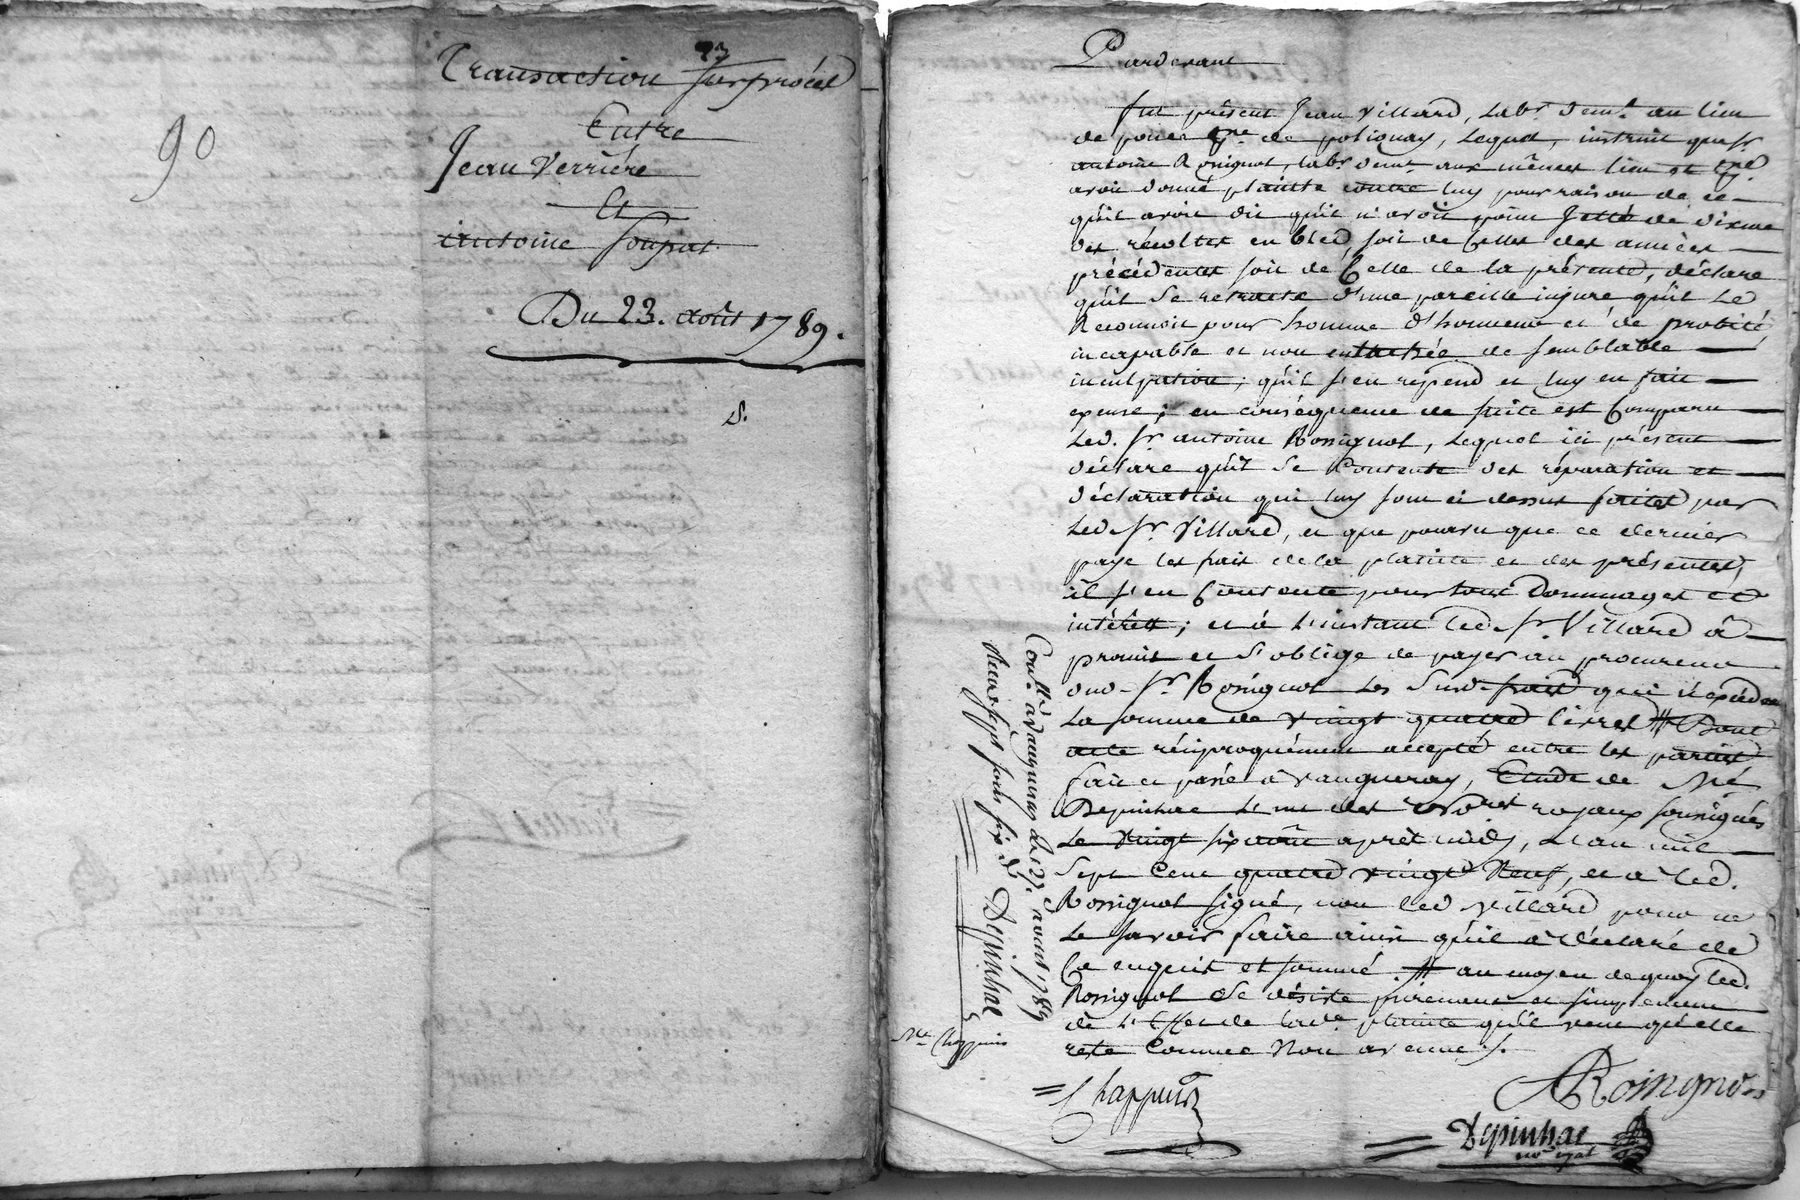 23
Transaction sur procès
Entre
Jean Verrière
Et
antoine Soupat
Du 23. août 1789.
S.
90
Pardevant
fut présent Jean Villard, Labr. demt. au lieu
de pouer psse. de poliguay, Lequel, instruit que Sr
antoine Rossignol, labr. demt. aux mêmes lieu et psse.
avoit donné plainte contre luy pour raison de ce
qu'il avoit dit qu'il n'avoit point Jetté de dixme
des récoltes en bled, soit de Celles des années
précédentes soit de Celle de la présente, déclare
qu'il se retracte d'une pareille injure qu'il Le
Reconnoit pour homme d'honneur et de probité
incapable et non entachée de semblable
inculpation; qu'il s'en repend et luy en fait
excuse; en conséquence de suite est Comparu
Led. Sr antoine Rossignol, Lequel ici présent
déclare qu'il se Contente des réparation et
déclaration qui luy sont ci dessus faites par
Led. Sr. Villard, et que pourvu que ce dernier
paye les frais de la plainte et des présentes,
il s'en Contente pour tout Dommages et
intérêts; et à L'instant led. Sr. Villard à
promis et s'oblige de payer au procureur
dud. Sr. Rossignol Les Susd. frais qui n'excède
La somme de vingt quatre livres # Dont
acte réciproquément accepté entre les parties
fait et passé à vaugneray, Etude de Me
Depinhac L'un des no.res royaux soussignés
Le vingt six août après midy, L'an mil
Sept Cent quatre vingt Neuf, et à led.
Rossignol signé, non led Villard pour ne
Le savoir faire ainsi qu'il à déclaré de
Ce enquis et sommé. # au moyen de quoy led.
Rossignol se désiste purement et simplement
de L'Effet de lade. plainte qu'il veut qu'elle
reste Comme Non avenue.
Rossignol
Chappuis
Depinhac
no.re royal
Conllé. à Vaugneray Le 27. août 1789
Reçu sept sols six d. Depinhac
Me. Chappuis